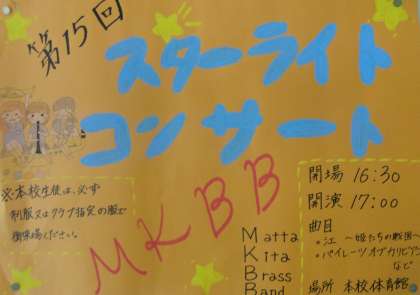 第15回
スターライト
コンサート
MKBB
Matta
Kita
Brass
Band
※本校生徒は、必ず
制服又はクラブ指定の服で
御来場ください。
開場 16:30
開演 17:00
曲目
・江 ～姫たちの戦国～
・パイレーツオブカリビアン
など
場所 本校体育館